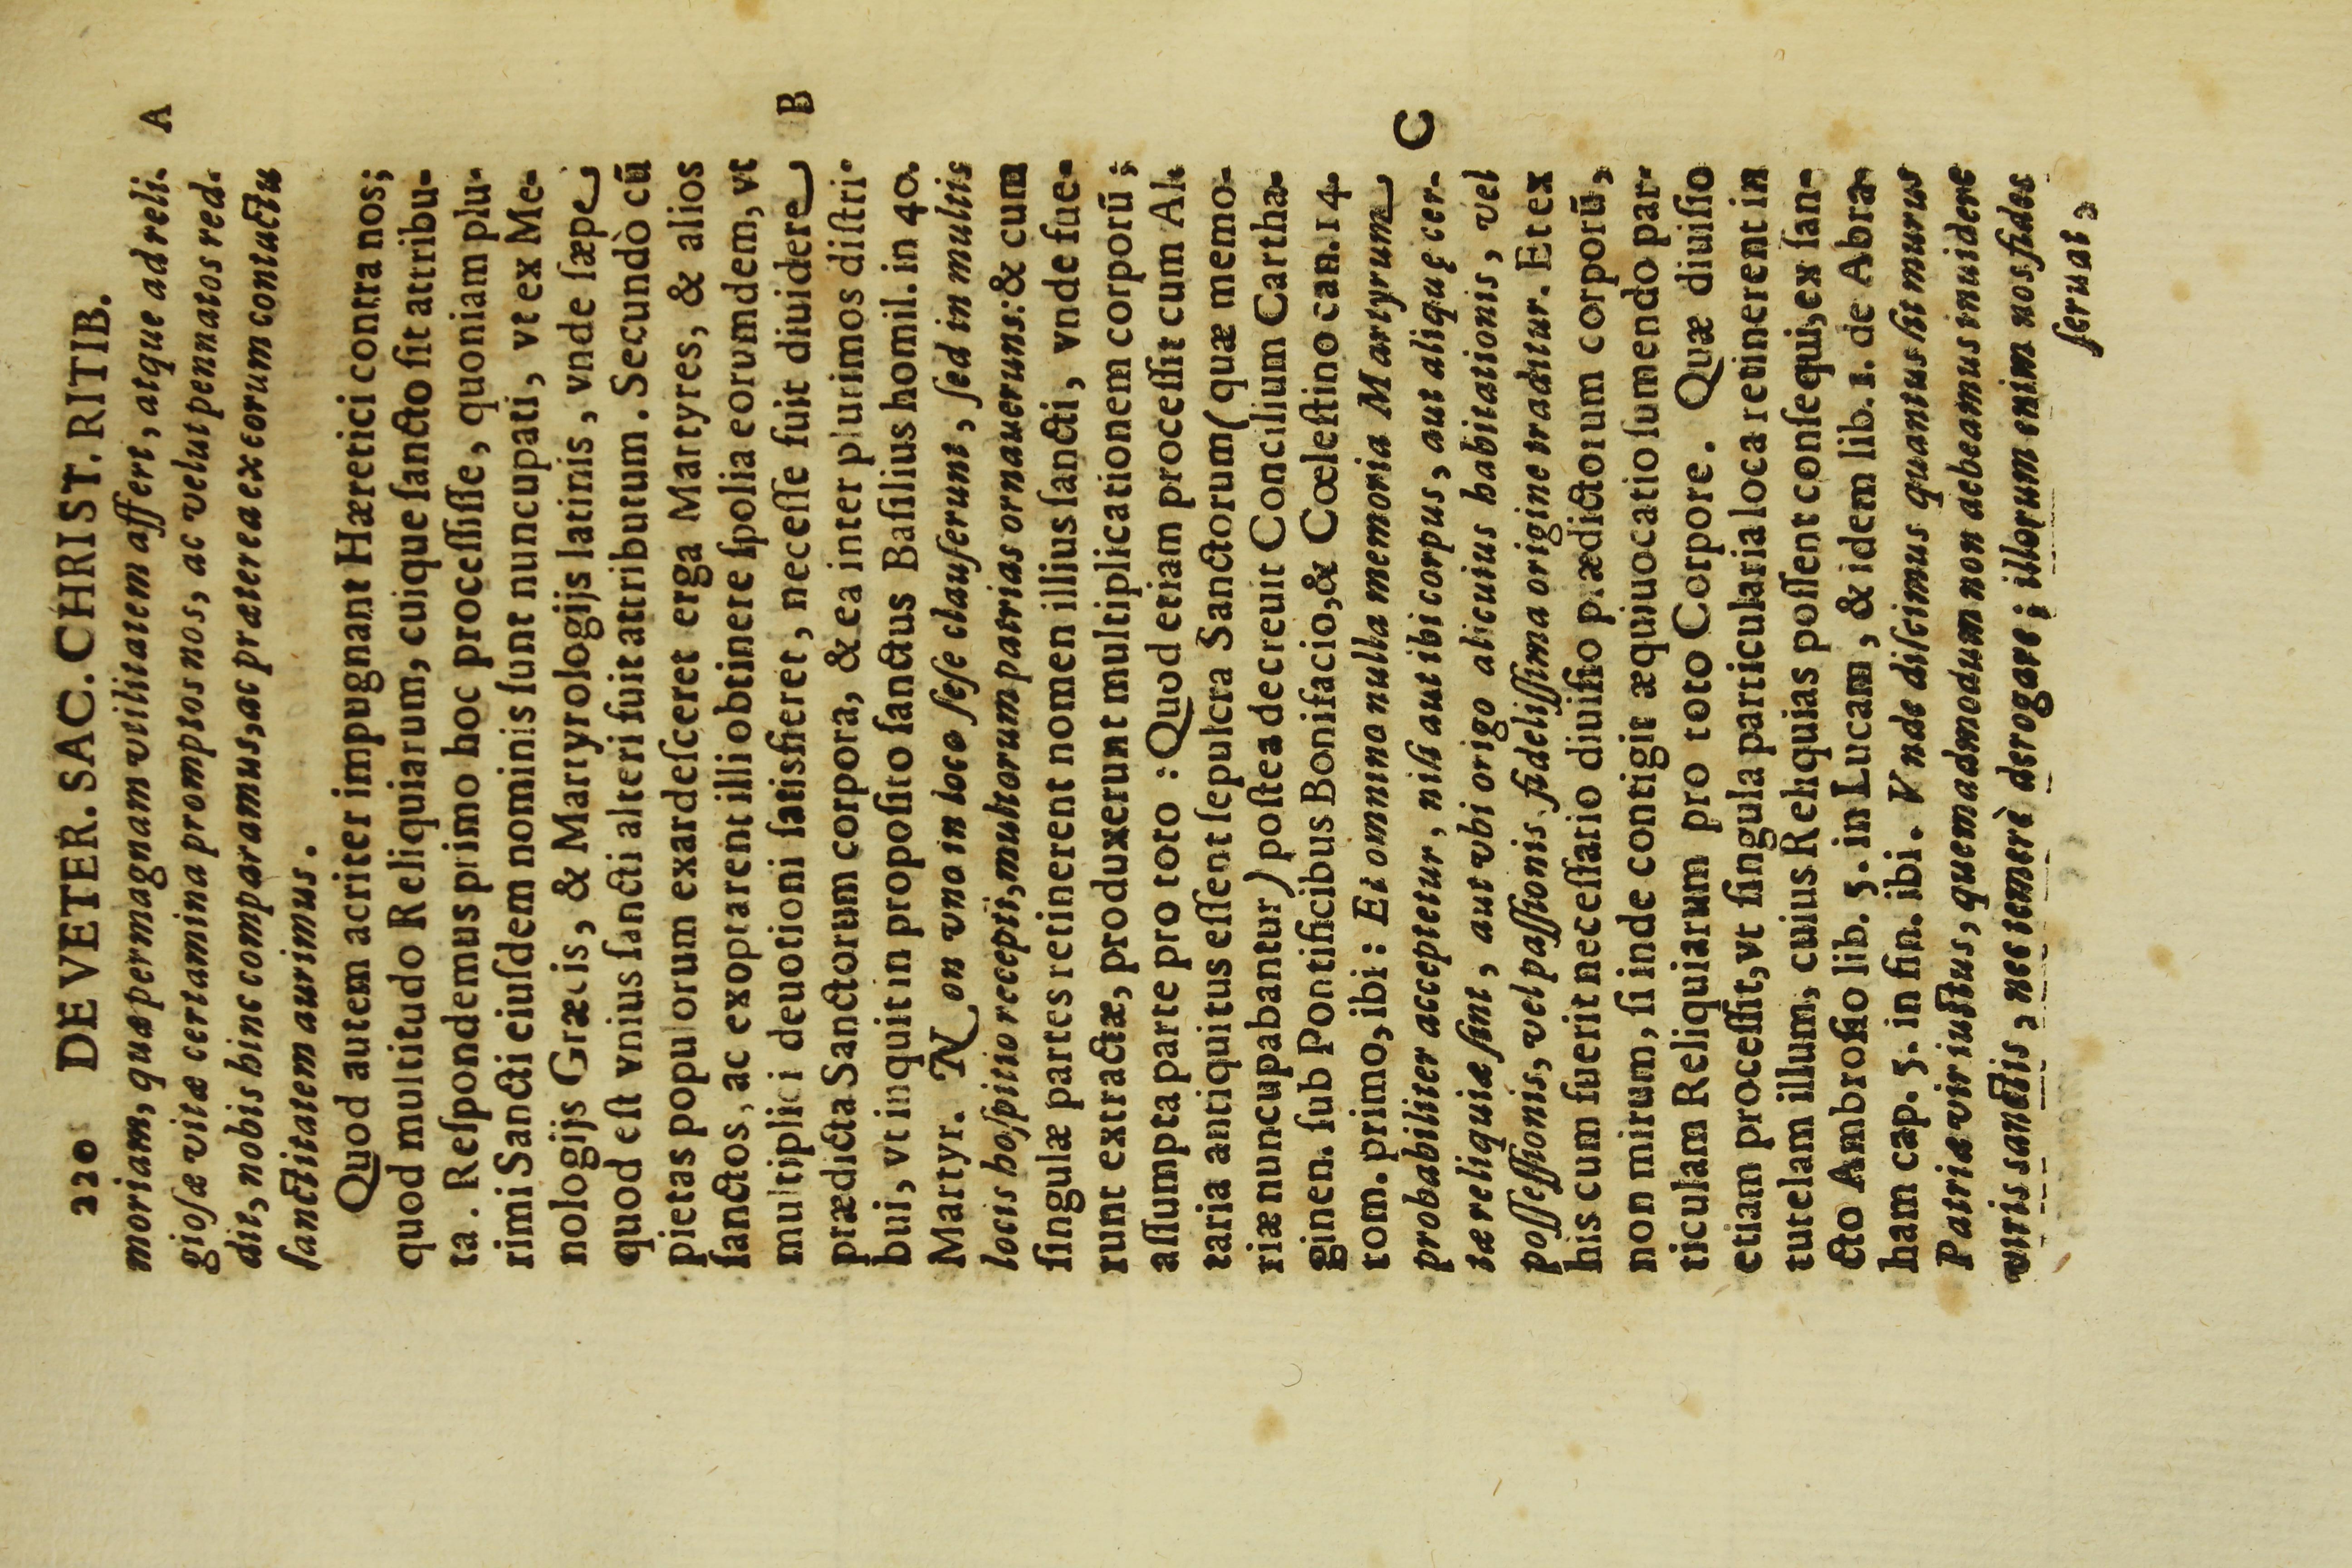 220 DE VETER. SAC. CHRIST. RITIB.
moriam, quæ permagnam vtilitatem affert, atque ad reli- A
gioſæ vitæ certamina promptos nos, ac velut pennatos red-
dit, nobis hinc comparamus, ac præterea ex eorum contactu
ſanctitatem aurimus.
Quod autem acriter impugnant Hæretici contra nos;
quod multitudo Reliquiarum, cuique ſancto ſit attribu-
ta. Reſpondemus primo hoc proceſſiſſe, quoniam plu-
rimi Sancti eiuſdem nominis ſunt nuncupati, vt ex Me-
nologijs Græcis, & Martyrologijs latinis, vnde ſæpe
quod eſt vnius ſancti alteri fuit attributum. Secundò cū
pietas populorum exardeſceret erga Martyres, & alios
ſanctos, ac exoptarent illi obtinere ſpolia eorumdem, vt
multiplici deuotioni ſatisfieret, neceſſe fuit diuidere B
prædicta Sanctorum corpora, & ea inter plurimos diſtri-
bui, vt inquit in propoſito ſanctus Baſilius homil. in 40.
Martyr. Non vno in loco ſeſe clauſerunt, ſed in multis
locis hoſpitio recepti, multorum patrias ornauerunt: & cum
ſingulæ partes retinerent nomen illius ſancti, vnde fue-
runt extractæ, produxerunt multiplicationem corporū;
aſſumpta parte pro toto: Quod etiam proceſſit cum Al-
taria antiquitus eſſent ſepulcra Sanctorum (quæ memo-
riæ nuncupabantur) poſtea decreuit Concilium Cartha-
ginen. ſub Pontificibus Bonifacio, & Cœleſtino can. 14.
tom. primo, ibi: Et omnino nulla memoria Martyrum
probabiliter acceptetur, niſi aut ibi corpus, aut aliquę cer- C
tæ reliquiæ ſint, aut vbi origo alicuius habitationis, vel
poſſeſſionis, vel paſſionis fideliſſima origine traditur. Et ex
his cum fuerit neceſſario diuiſio prædictorum corporū,
non mirum, ſi inde contigit æquiuocatio ſumendo par-
ticulam Reliquiarum pro toto Corpore. Quæ diuiſio
etiam proceſſit, vt ſingula particularia loca retinerent in
tutelam illum, cuius Reliquias poſſent conſequi, ex ſan-
cto Ambroſio lib. 5. in Lucam, & idem lib. 1. de Abra-
ham cap. 3. in fin. ibi. Vnde diſcimus quantus ſit murus
Patriæ vir iuſtus, quemadmodum non debeamus inuidere
viris sanctis, nec temerè derogare; illorum enim nos fides
ſeruat,